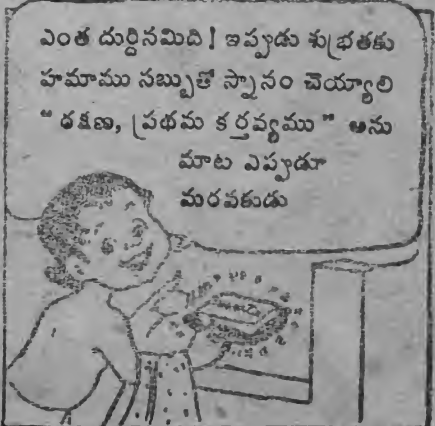 ఎంత దుర్దినమిది! ఇప్పుడు శుభ్రతకు
హమాము సబ్బుతో స్నానం చెయ్యాలి
" రక్షణ, ప్రథమ కర్తవ్యము " అను
మాట ఎప్పుడూ
మరవకుడు